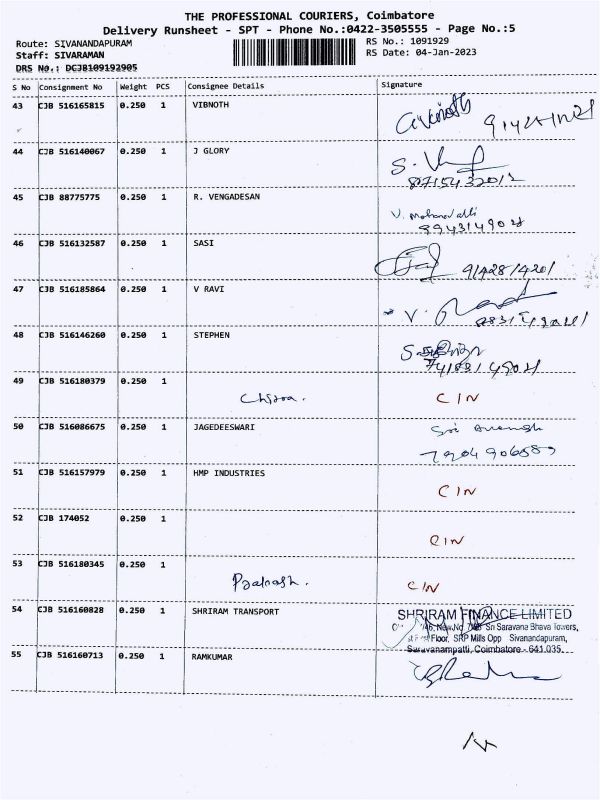 THE PROFESSIONAL COURIERS, Coimbatore
Delivery Runsheet - SPT - Phone No.:0422-3505555 - Page No.:5
Route: SIVANANDAPURAM
RS No.: 1091929
Staff: SIVARAMAN
RS Date: 04-Jan-2023
DRS No.: DCJB109192905
S No Consignment No Weight PCS Consignee Details Signature
43 CJB 516165815 0.250 1 VIBNOTH
44 CJB 516140067 0.250 1 J GLORY
45 CJB 88775775 0.250 1 R. VENGADESAN
46 CJB 516132587 0.250 1 SASI
47 CJB 516185864 0.250 1 V RAVI
48 CJB 516146260 0.250 1 STEPHEN
49 CJB 516180379 0.250 1
CIN
50 CJB 516086675 0.250 1 JAGEDEESWARI
51 CJB 516157979 0.250 1 HMP INDUSTRIES
CIN
52 CJB 174052 0.250 1
CIN
53 CJB 516180345 0.250 1
CIN
54 CJB 516160828 0.250 1 SHRIRAM TRANSPORT SHRIRAM FINANCE LIMITED
Sri Saravana Bhava Towers,
Floor, SRP Mills Opp Sivanandapuram,
Saravanampatti, Coimbatore - 641 035
55 CJB 516160713 0.250 1 RAMKUMAR